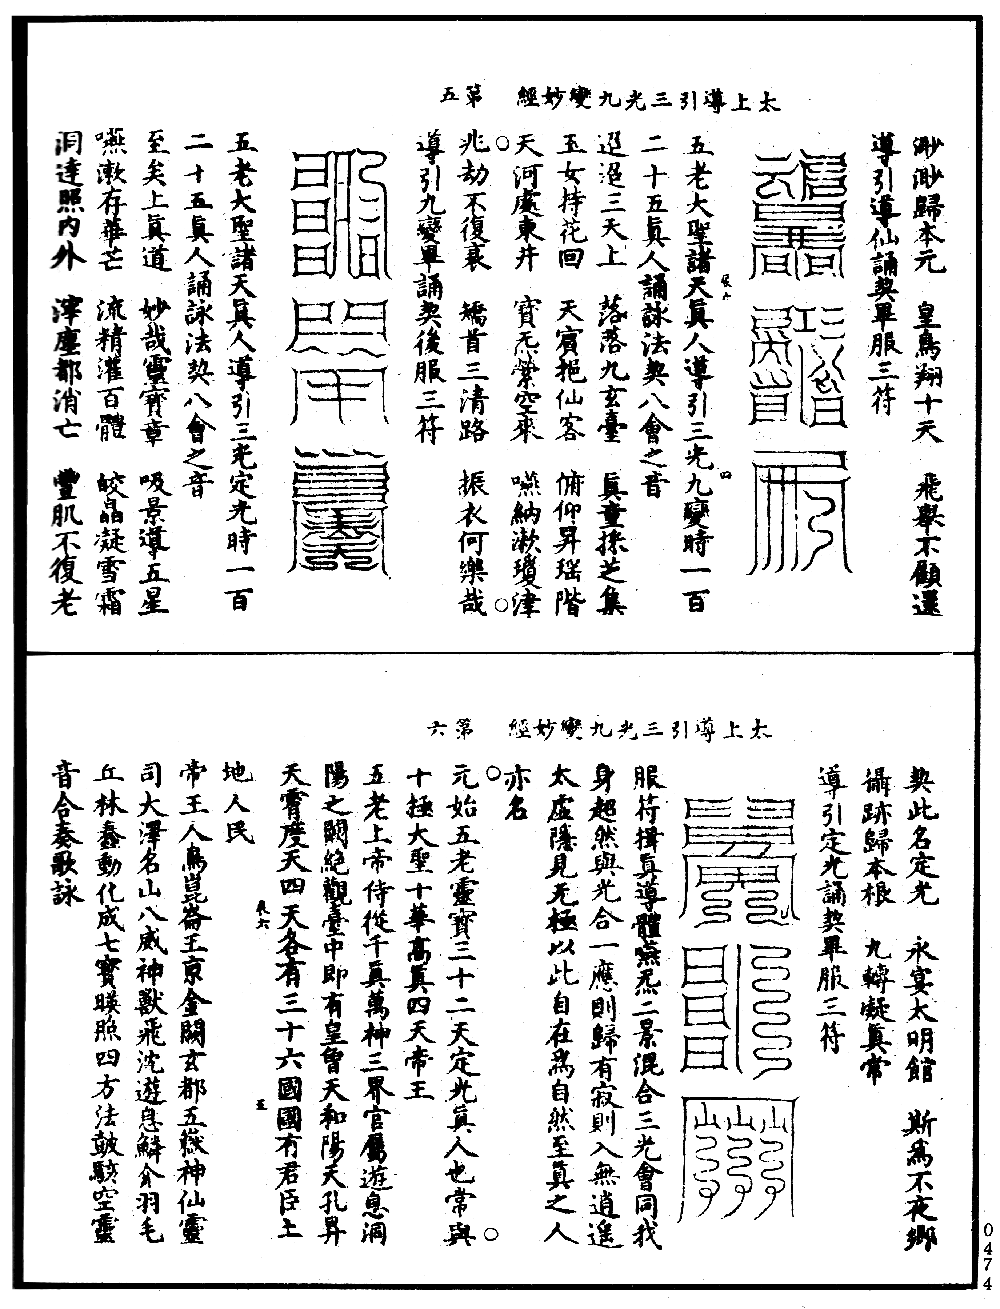 太上導引三光九變妙經　第五
渺渺歸本元　皇鳥翔十天　飛舉不顧還
導引導仙誦契畢服三符
五老大聖諸天眞人導引三光九變時一百
二十五眞人誦詠法契八會之音
迢迢三天上　落落九玄臺　眞童採芝集
玉女持花回　天賓挹仙客　俯仰昇瑶階
天河處東井　寶炁縈空來　嚥納漱瓊津
兆劫不復衰　矯首三清路　振衣何樂哉
導引九變畢誦契後服三符
五老大聖諸天眞人導引三光定光時一百
二十五眞人誦詠法契八會之音
至矣上眞道　妙哉靈寶章　吸景導五星
嚥漱存華芒　流精灌百體　皎晶凝雪霜
洞達照内外　滓塵都消亡　豐肌不復老
太上導引三光九變妙經　第六
契此名定光　永宴太明館　斯爲不夜鄉
攝跡歸本根　九轉凝眞常
導引定光誦契畢服三符
服符揖眞導體嚥炁二景混合三光會同我
身超然與光合一應則歸有寂則入無逍遥
太虚隱見无極以此自在爲自然至眞之人
亦名
元始五老靈寶三十二天定光眞人也常與
十極大聖十華高眞四天帝王
五老上帝侍從千眞萬神三界官屬遊息洞
陽之闕絶觀臺中即有皇曾天和陽天孔昇
天霄度天四天各有三十六國國有君臣土
地人民
帝王人鳥崑崙王京金闕玄都五嶽神仙靈
司大澤名山八威神獸飛沈遊息鱗介羽毛
丘林蠢動化成七寶暎照四方法皷駭空靈
音合奏歌詠
0474